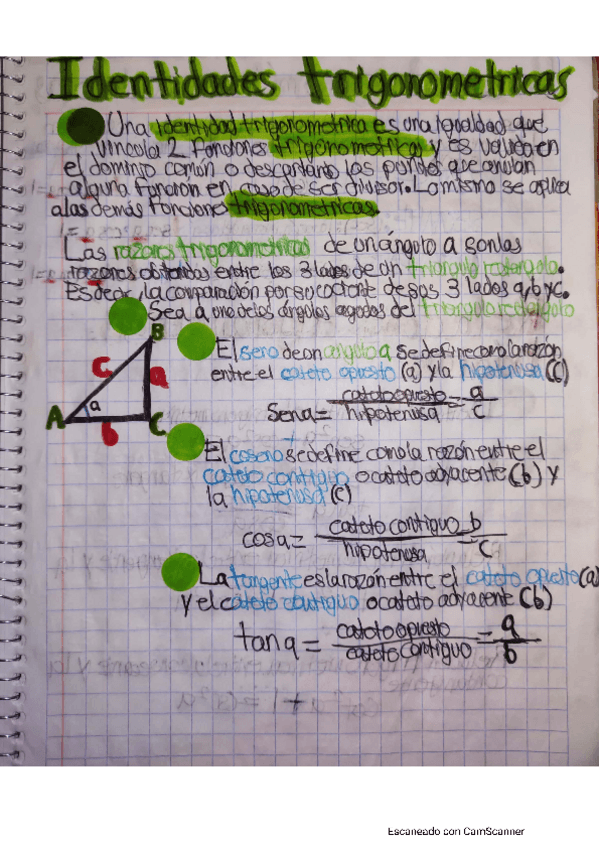 Identidades trigonometricas
Una identidad trigonometrica es una igualdad que
vincula 2 funciones trigonometricas y es valida en
el dominio común o descartando los puntos que anulan
alguna función en caso de ser divisor. Lo mismo se aplica
a las demás funciones trigonometricas.
Las razones trigonometricas de un ángulo a son las
razones obtenidas entre los 3 lados de un triangulo rectangulo.
Es decir, la comparación por su cociente de sus 3 lados a, b y c.
Sea a uno de los ángulos agudos del triangulo rectangulo
B
c
a
A
a
b
C
El seno de un angulo a se define como la razón
entre el cateto opuesto (a) y la hipotenusa (c)
sena = cateto opuesto / hipotenusa = a / c
El coseno se define como la razón entre el
cateto contiguo o cateto adyacente (b) y
la hipotenusa (c)
cosa = cateto contiguo / hipotenusa = b / c
La tangente es la razón entre el cateto opuesto (a)
y el cateto contiguo o cateto adyacente (b)
tan a = cateto opuesto / cateto contiguo = a / b
Escaneado con CamScanner